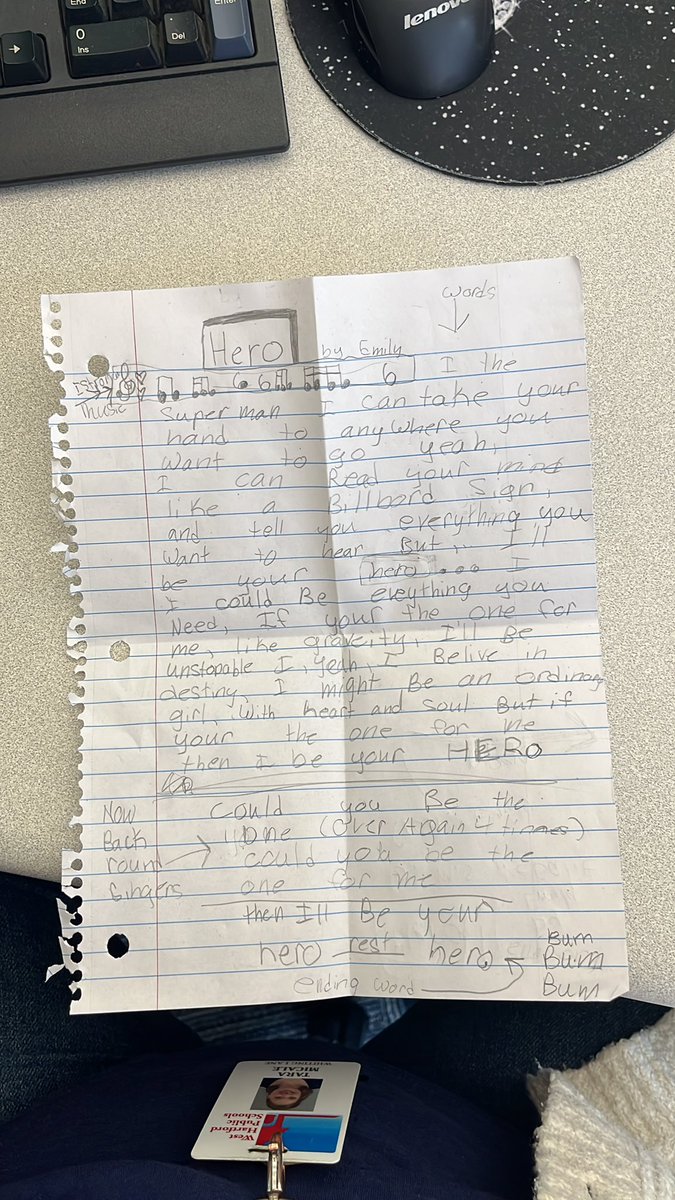 End
Enter
0
Ins
Del
lenovo
words
Hero by Emily
I the
Thusic
Super man I can take your
hand to anywhere you
want to go yeah,
I can Read your mind
like a Billbord Sign,
and tell you everything you
want to hear But... I'll
be your hero.... I
I could Be eveything you
Need, If your the one for
me, like graveity, I'll Be
unstopable I, yeah, I Belive in
destiny, I might Be an ordinary
girl, with heart and soul But if
your the one for me
then I be your HERO
Now Could you Be the
Back one (Over Again 4 times)
round could you be the
Singers one for me
then I'll Be your
hero rest hero.
Bum
Bum
Bum
ending word
West
Hartford
Public
Schools
TARA
MICALE
WHITING LANE